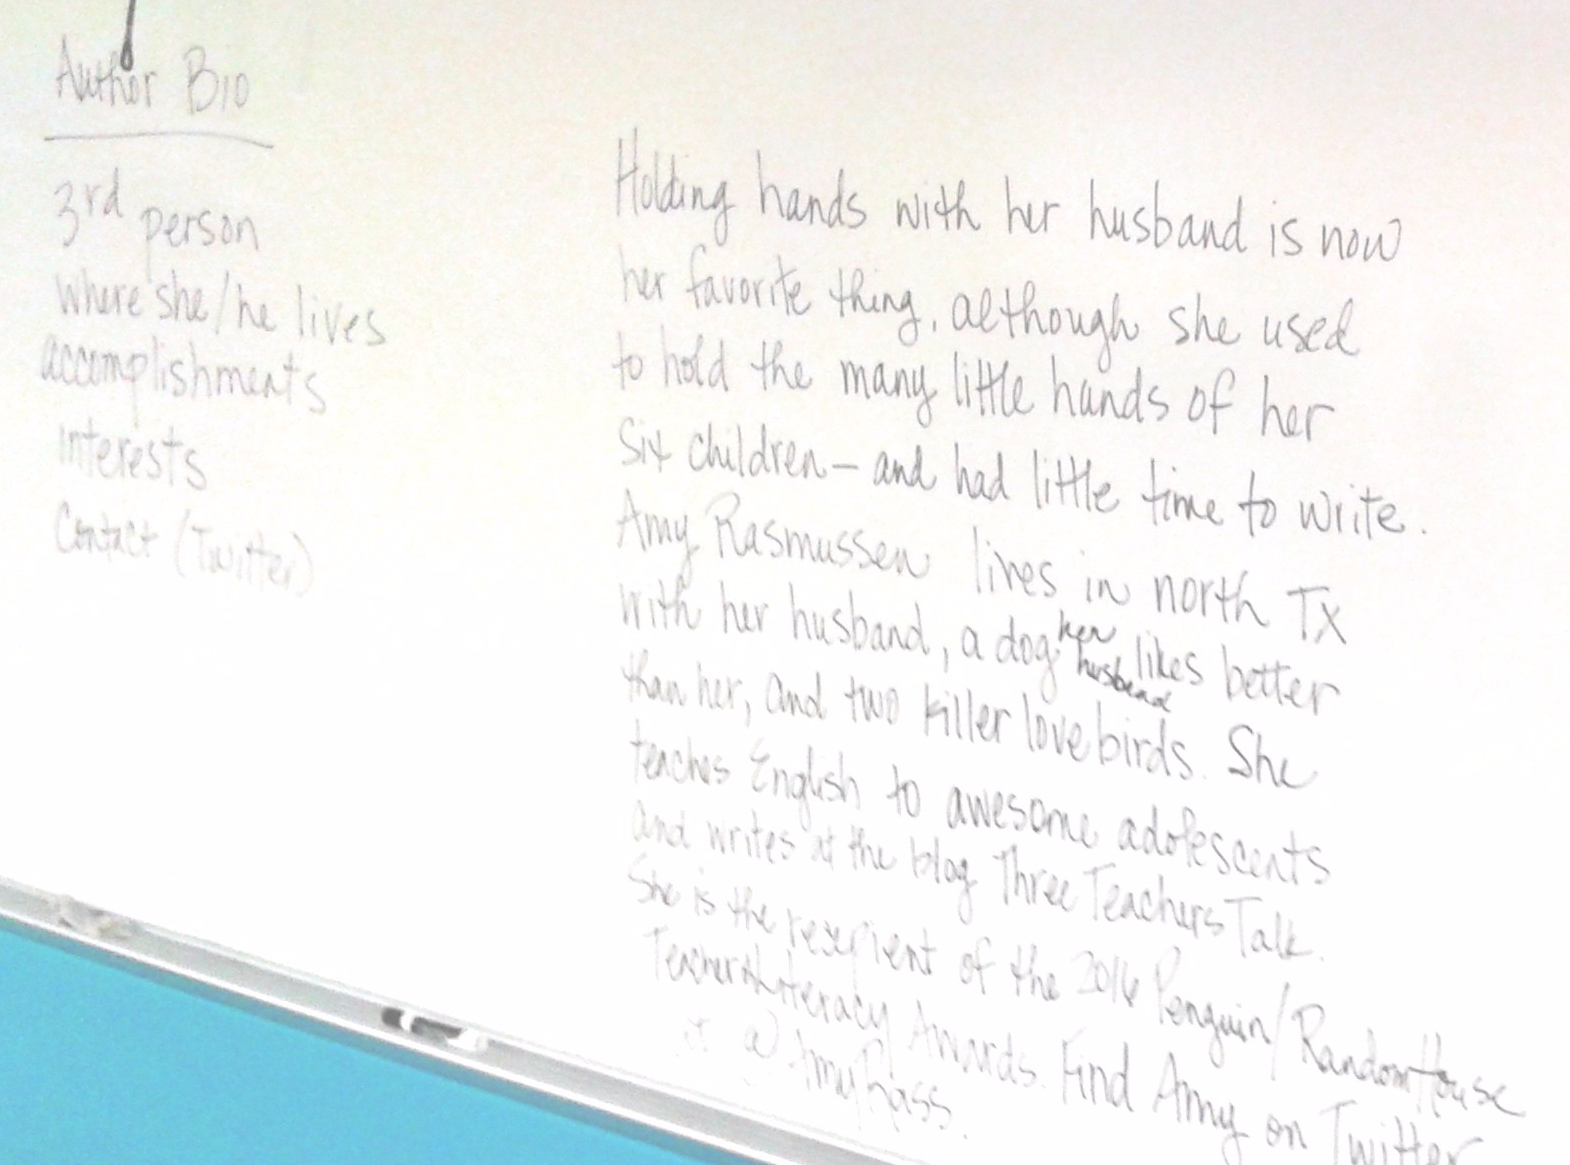 Author Bio
3rd person
where she/he lives
accomplishments
interests
Contact (Twitter)
Holding hands with her husband is now
her favorite thing, although she used
to hold the many little hands of her
six children – and had little time to write.
Amy Rasmussen lives in north TX
with her husband, a dog her husband likes better
than her, and two killer love birds. She
teaches English to awesome adolescents
and writes at the blog Three Teachers Talk.
She is the recepient of the 2016 Penguin/RandomHouse
Teacher Literacy Awards. Find Amy on Twitter
@AmyRass.